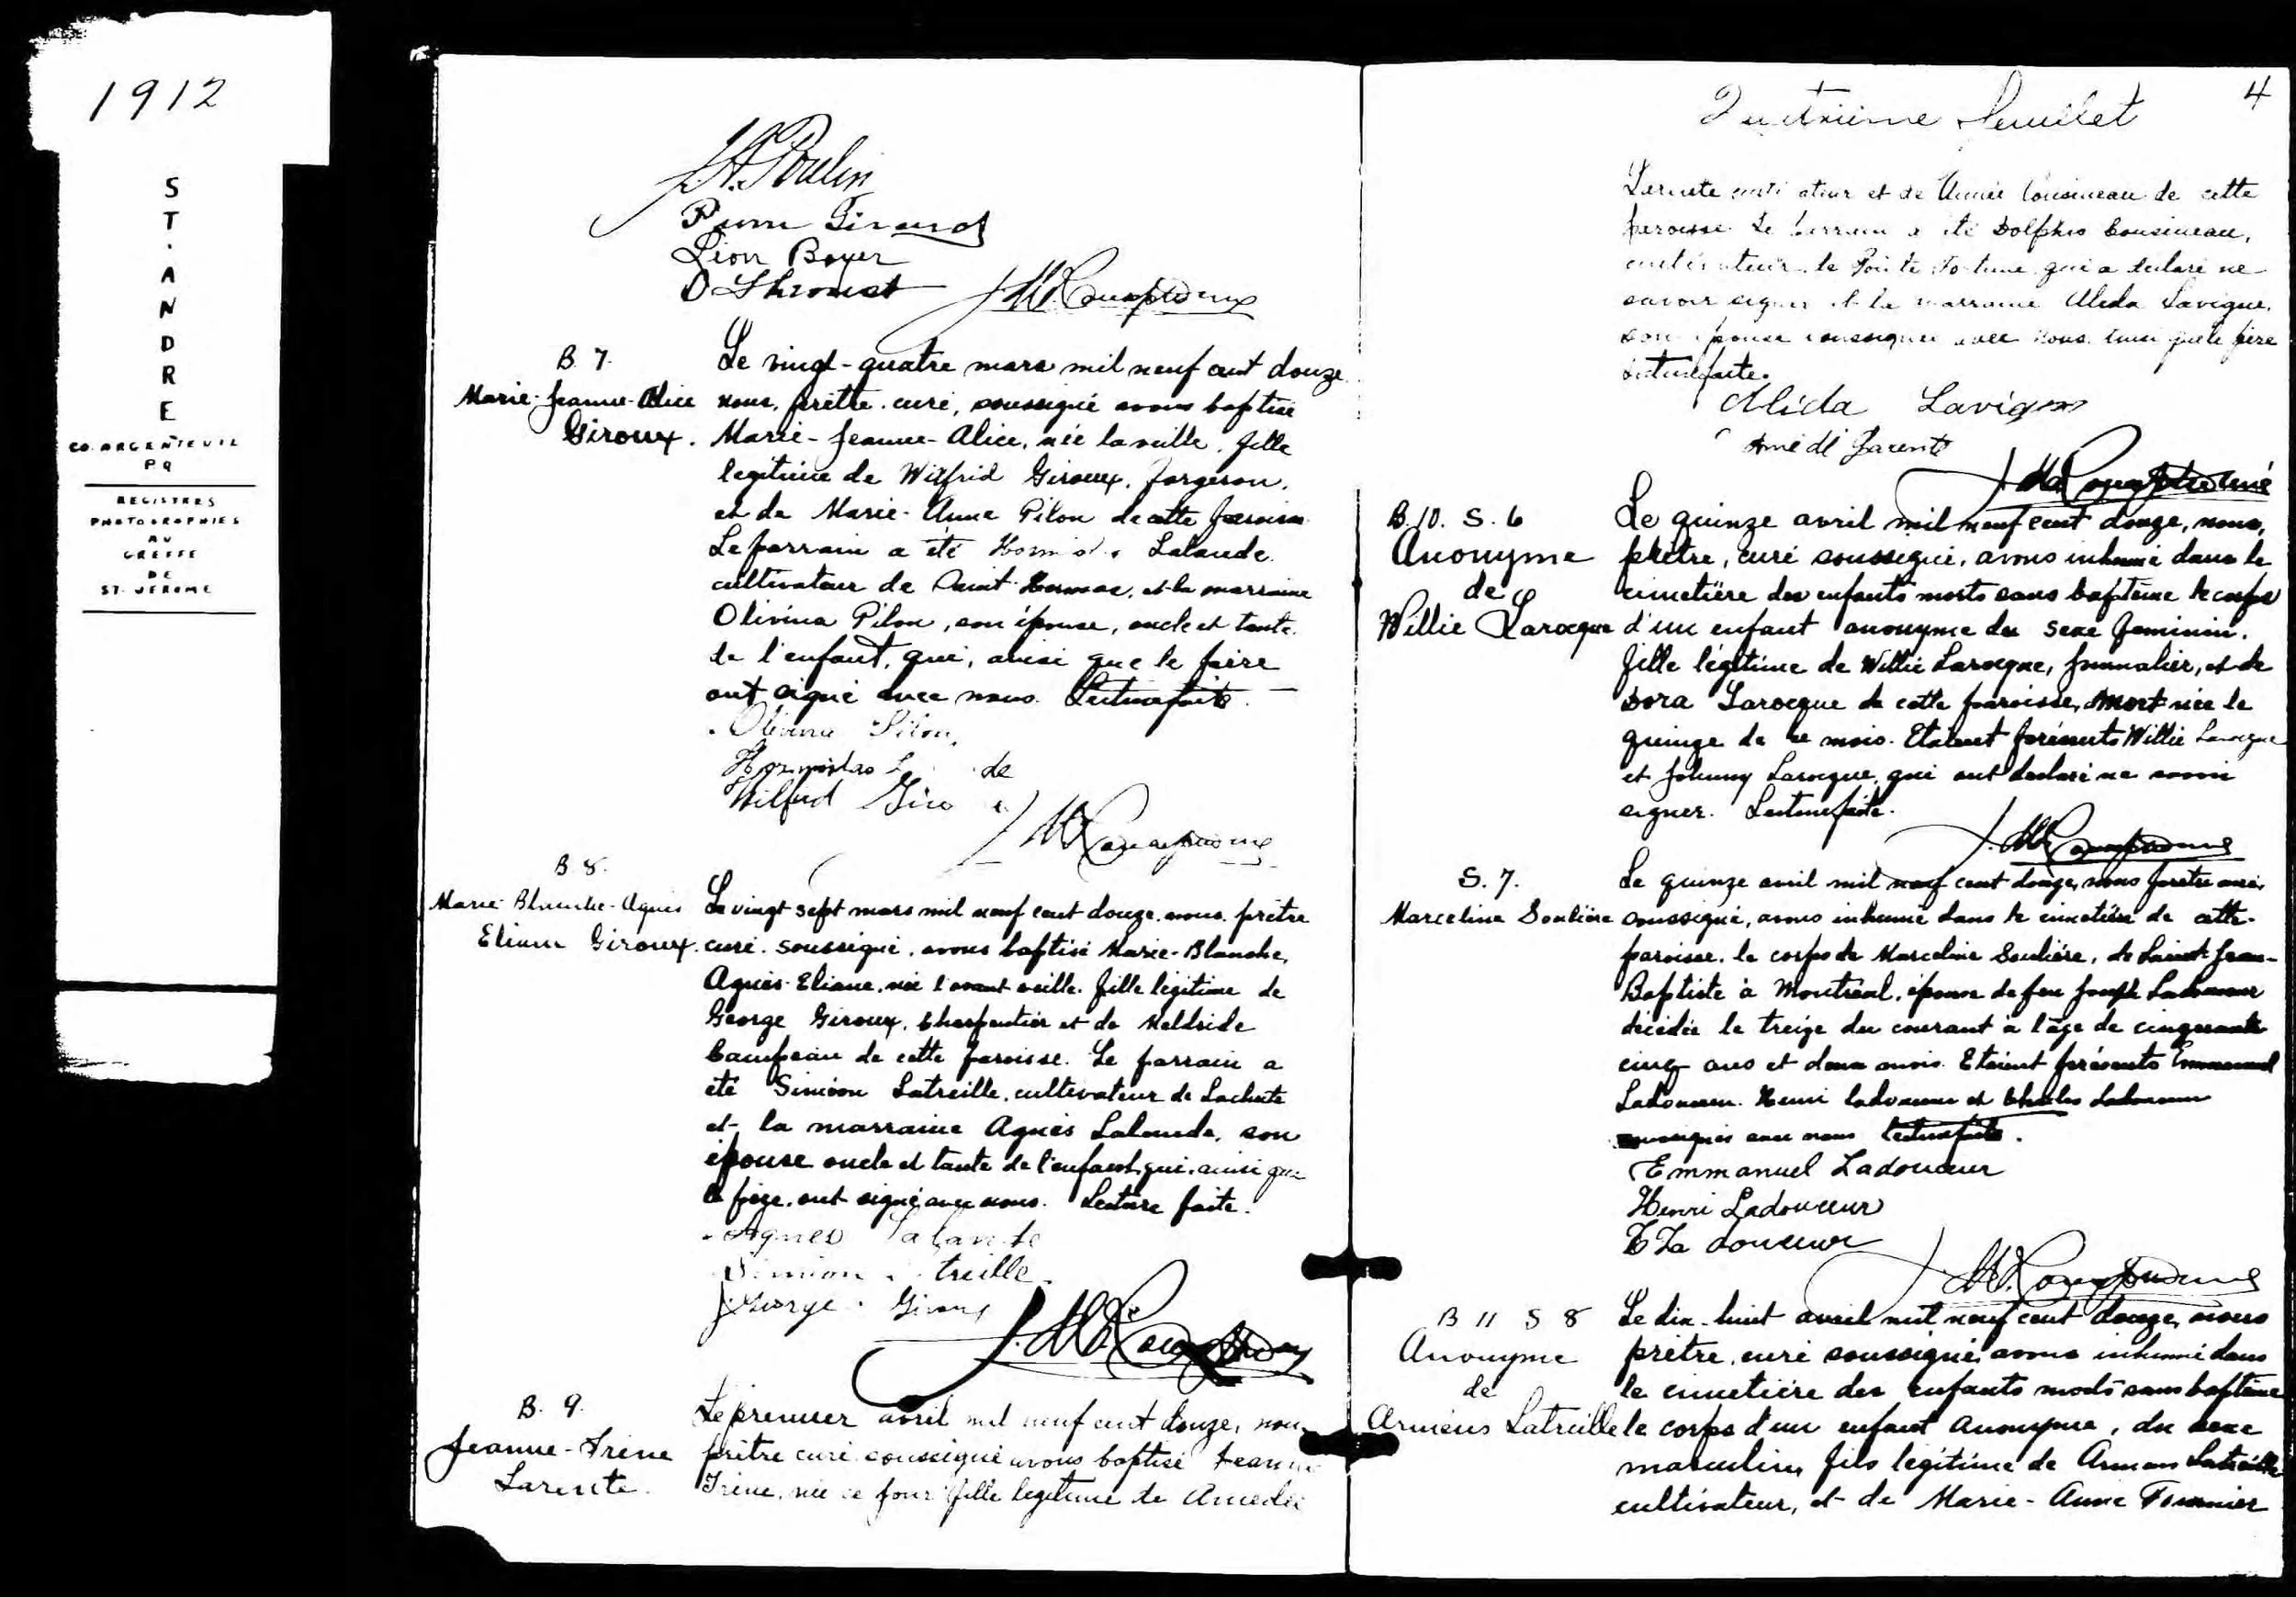 1912
ST. ANDRE
CO. ARGENTEUIL
P Q
REGISTRES
PHOTOGRAPHIES
AU
GREFFE
DE
ST. JEROME
Léon Boyer
B. 7.
Marie-Jeanne-Alice
Giroux.
Le vingt-quatre mars mil neuf cent douze
nous, prêtre curé, soussigné avons baptisé
Marie-Jeanne-Alice, née la veille, fille
légitime de Wilfrid Giroux, forgeron,
et de Marie-Anne Pilon de cette paroisse
Le parrain a été Lalande
cultivateur de Saint Hermas, et la marraine
Olivina Pilon, son épouse, oncle et tante
de l'enfant, qui, ainsi que le père
ont signé avec nous. Lecture faite.
Olivina Pilon
Hormisdas de
Wilfrid
B. 8.
Marie Blanche-Agnès
Eliane Giroux.
Le vingt sept mars mil neuf cent douze, nous, prêtre
curé, soussigné, avons baptisé Marie-Blanche,
Agnès-Eliane, née l'avant veille, fille légitime de
George Giroux, charpentier et de
de cette paroisse. Le parrain a
été Siméon Latreille, cultivateur de Lachute
et la marraine Agnès Lalande, son
épouse oncle et tante de l'enfant, qui, ainsi que
le père, ont signé avec nous. Lecture faite.
Agnes Lalande
treille
George Giroux
B. 9.
Jeanne-Irène
Larente.
Le premier avril mil neuf cent douze, nous
prêtre curé soussigné avons baptisé Jeanne
Irène, née ce jour fille légitime de Amédée
4
Quatrième feuillet
Larente cultivateur et de Cousineau de cette
paroisse. Le parrain a été Dolphis Cousineau,
cultivateur de Pointe Fortune qui a déclaré ne
savoir signer et la marraine Alida Lavigne,
son épouse soussignée avec nous ainsi que le père
lecture faite.
Alida Lavigne
B. 10. S. 6
Anonyme
de
Willie Larocque
Le quinze avril mil neuf cent douze, nous,
prêtre, curé soussigné, avons inhumé dans le
cimetière des enfants morts sans baptême le corps
d'un enfant anonyme du sexe féminin,
fille légitime de Willie Larocque, journalier, et de
Dora Larocque de cette paroisse, mort née le
quinze de ce mois. Etaient présents Willie Larocque
et Johnny Larocque, qui ont déclaré ne savoir
signer. Lecture faite.
S. 7.
Marceline Soulière
Le quinze avril mil neuf cent douze, nous prêtre curé,
soussigné, avons inhumé dans le cimetière de cette
paroisse, le corps de Marceline Soulière, de Saint Jean-
Baptiste à Montreal, épouse de feu Joseph Ladouceur
décédée le treize du courant à l'âge de cinquante
cinq ans et deux mois. Etaient présents Emmanuel
Ladouceur. Henri Ladouceur et Charles Ladouceur
soussignés avec nous lecture faite.
Emmanuel Ladouceur
Henri Ladouceur
Ladouceur
B 11 S 8
Anonyme
de
Latreille
Le dix-huit avril mil neuf cent douze, nous
prêtre, curé soussigné avons inhumé dans
le cimetière des enfants morts sans baptême
le corps d'un enfant anonyme, du sexe
masculin, fils légitime de Latreille
cultivateur, et de Marie-Anne Fournier